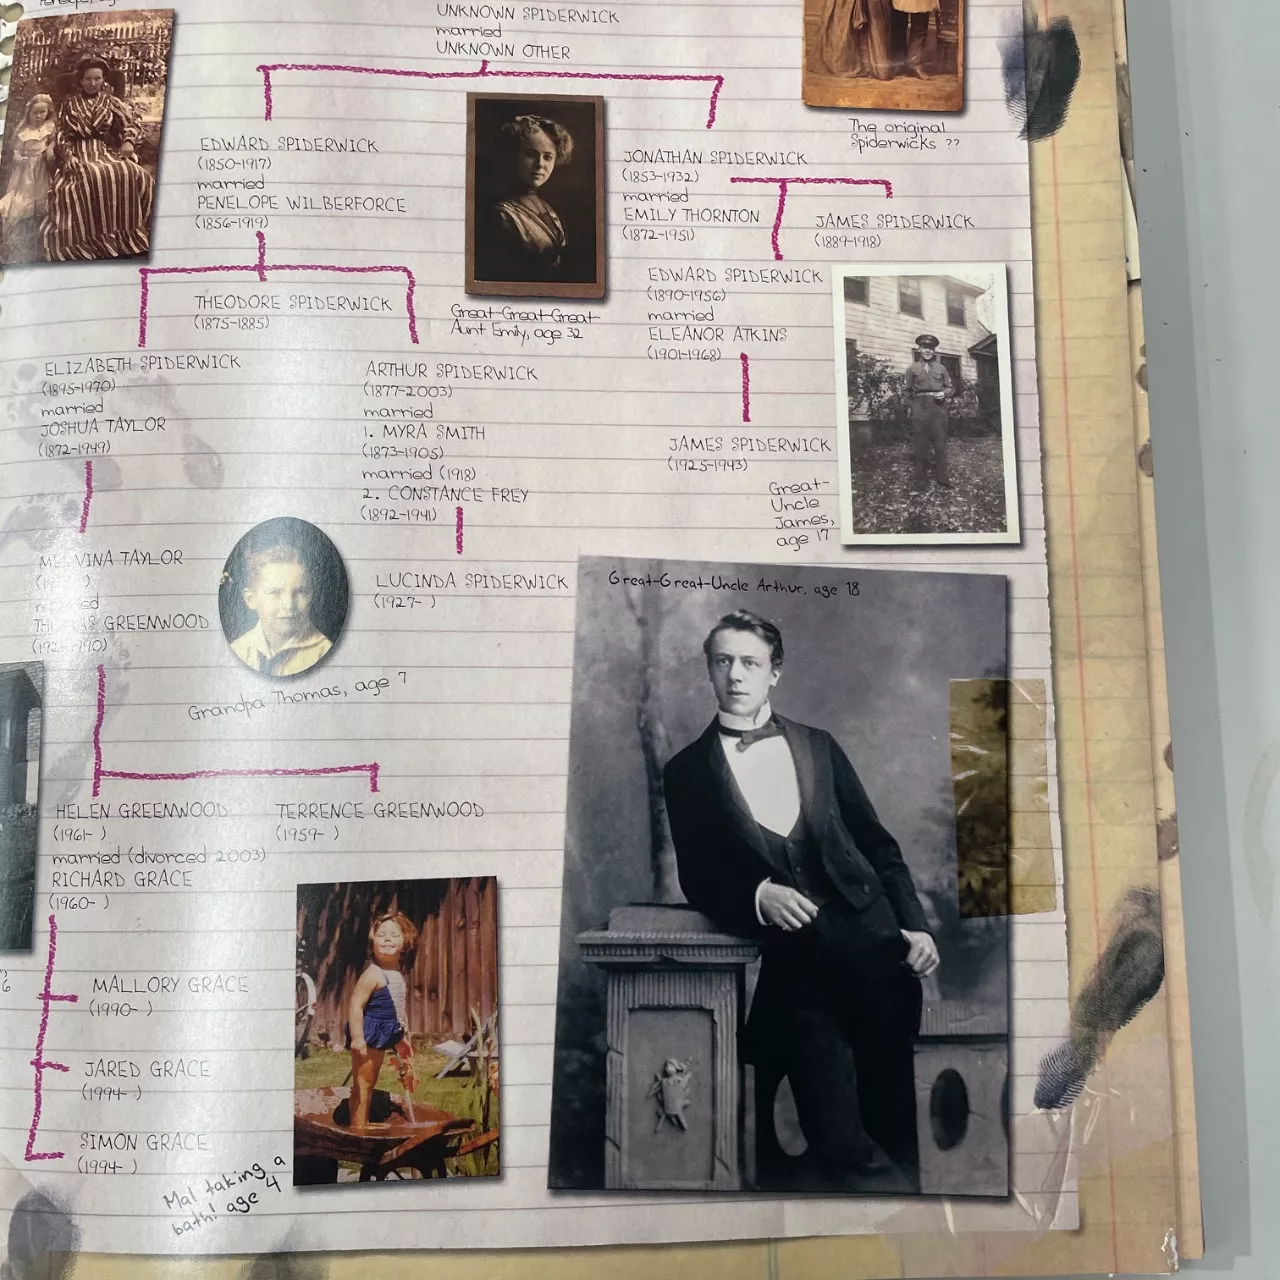 UNKNOWN SPIDERWICK
married
UNKNOWN OTHER
The original
Spiderwicks ??
EDWARD SPIDERWICK
(1850-1917)
married
PENELOPE WILBERFORCE
(1856-1919)
JONATHAN SPIDERWICK
(1853-1932)
married
EMILY THORNTON
(1872-1951)
JAMES SPIDERWICK
(1889-1918)
Great-Great-Great-
Aunt Emily, age 32
THEODORE SPIDERWICK
(1875-1885)
EDWARD SPIDERWICK
(1890-1956)
married
ELEANOR ATKINS
(1901-1968)
ELIZABETH SPIDERWICK
(1895-1970)
married
JOSHUA TAYLOR
(1872-1949)
ARTHUR SPIDERWICK
(1877-2003)
married
1. MYRA SMITH
(1873-1905)
married (1918)
2. CONSTANCE FREY
(1892-1941)
JAMES SPIDERWICK
(1925-1943)
Great-
Uncle
James,
age 17
TAYLOR
GREENWOOD
LUCINDA SPIDERWICK
(1927- )
Grandpa Thomas, age 7
Great-Great-Uncle Arthur, age 18
HELEN GREENWOOD
(1961- )
married (divorced 2003)
RICHARD GRACE
(1960- )
TERRENCE GREENWOOD
(1959- )
MALLORY GRACE
(1990- )
JARED GRACE
(1994- )
SIMON GRACE
(1994- )
Mal taking a
bath! age 4